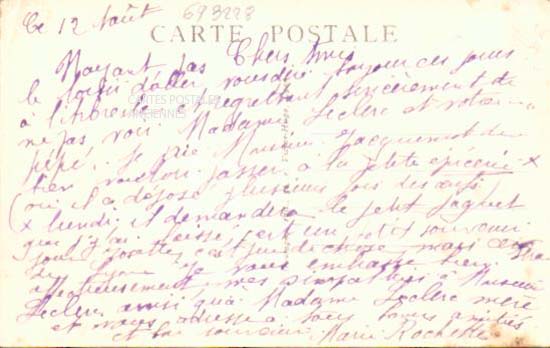 Ce 12 Août
693228
CARTE POSTALE
Chers Amis
N'ayant pas
le loisir d'aller vous dire bonjour ces jours
à l'Arbresle et regrettant sincèrement de
CARTES POSTALES
ANCIENNES
ne pas voir Madame Leclerc et votre
pépé. Je prie Monsieur Jacquemot de
bien vouloir passer à la petite épicerie
(où il a déposé plusieurs fois des œufs)
x lundi il demandera le petit paquet
que j'y ai laissé c'est un petit souvenir
pour c'est peu de chose mais
je vous embrasse bien
affectueusement mes sympathies à Monsieur
Leclerc ainsi qu'à Madame Leclerc mère
et vous adresse à tous bonnes amitiés
et bon souvenir Marie Rochette